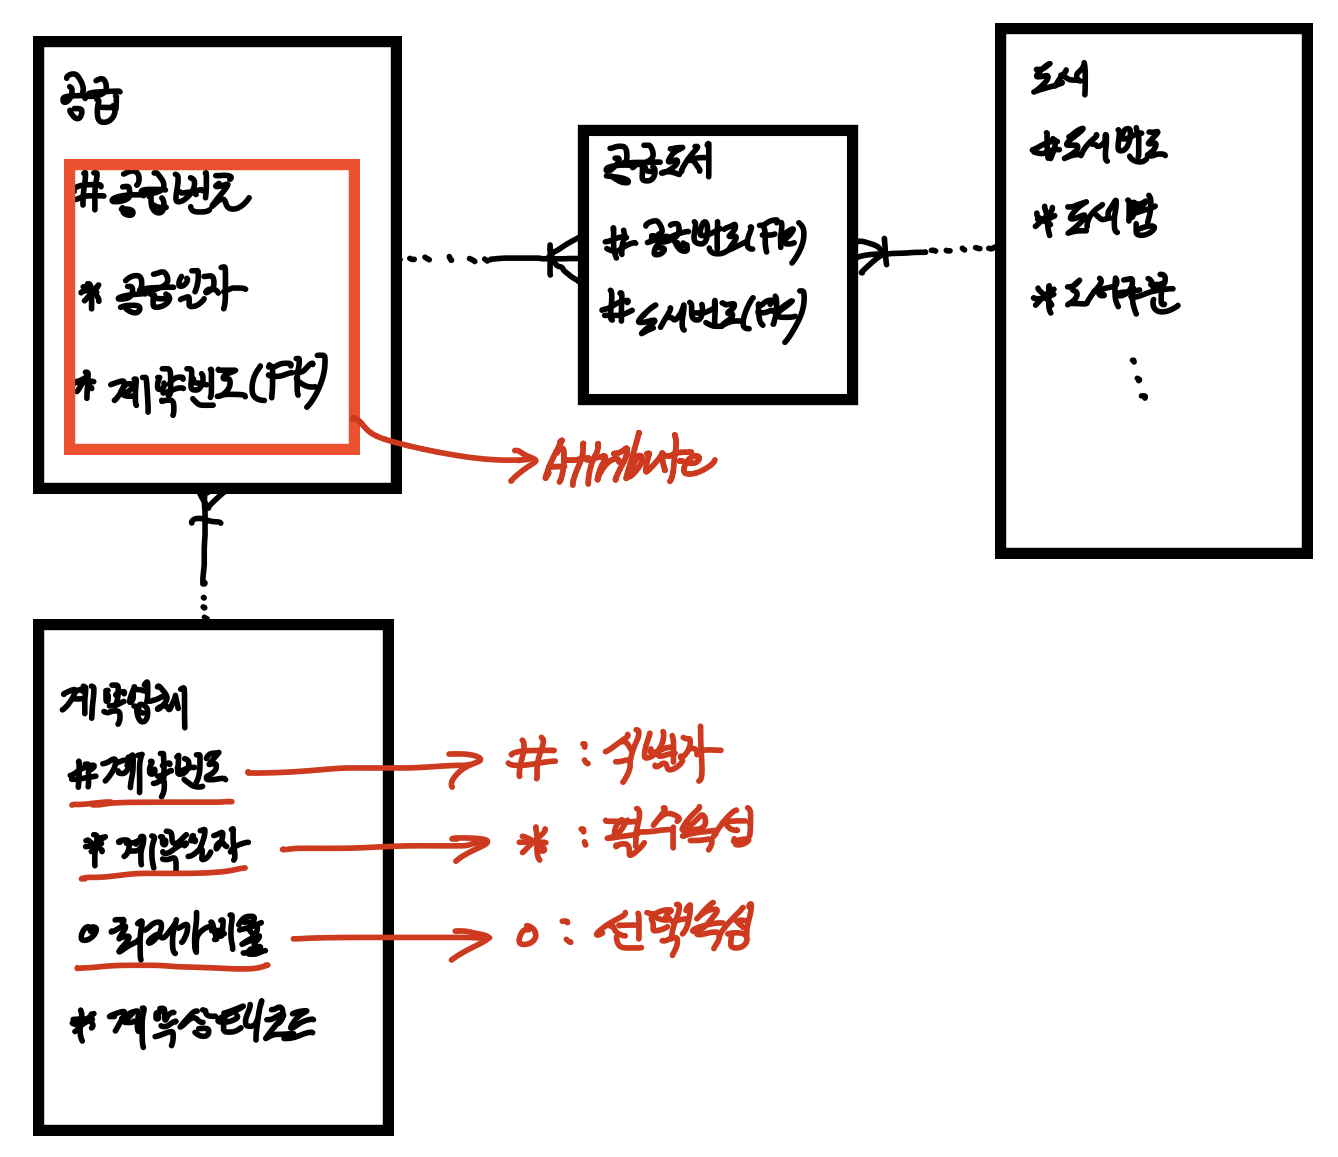 공급
# 공급번호
* 공급일자
* 계약번호(FK)
공급도서
# 공급번호(FK)
# 도서번호(FK)
도서
# 도서번호
* 도서명
* 도서구분
Attribute
계약업체
# 계약번호
* 계약일자
o 최저가비율
* 계약상태코드
# : 식별자
* : 필수속성
o : 선택속성